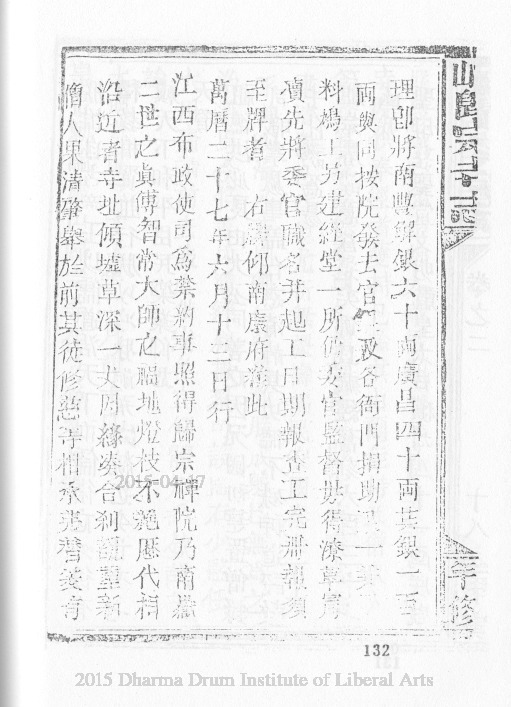 理即將南豐解銀六十兩廣昌四十両共銀一百
両與同按院發去官銀及各衙門捐助
料鳩工另建經堂一所仍委官監督毋得潦草冐
凟先將委官職名并起工日期報查工完册報須
至牌者 右牌仰南康府准此
萬曆二十七年六月十三日行
江西布政使司爲禁約事照得歸宗禪院乃南嶽
二世之眞傳智常大師之賜地燈枝不絶歷代相
沿近者寺址傾墟草深一丈因緣湊合刹觀重新
僧人果清肇舉於前其徒修慈等相承
2015-04-27
132
2015 Dharma Drum Institute of Liberal Arts